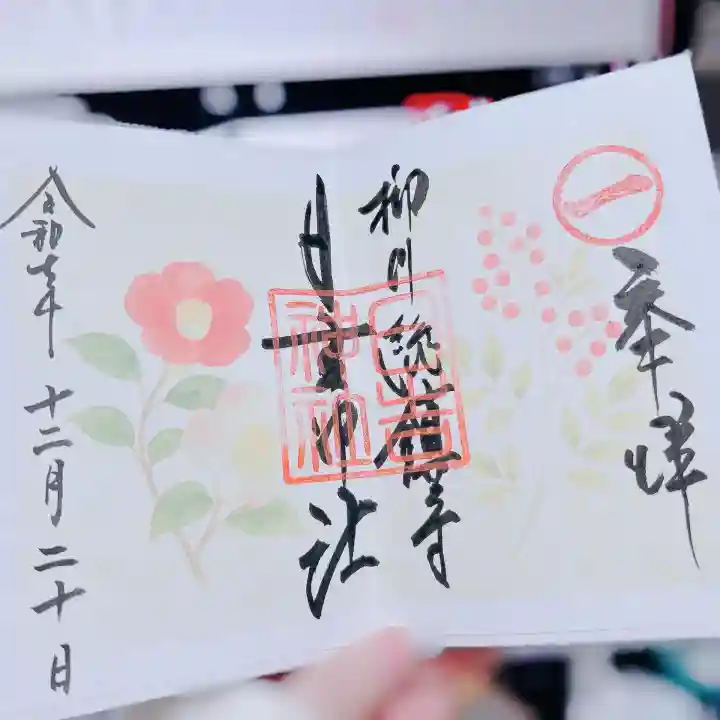 一
奉拝
柳川総鎮守
日吉神社
日吉
神社
令和七年 十二月 二十日